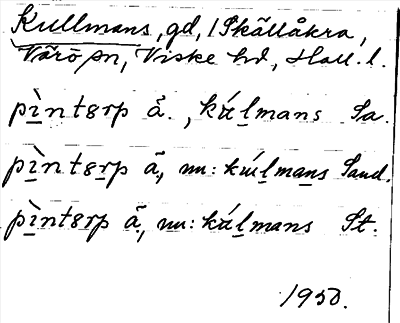 Kullmans, gd, i Skällåkra,
Värö sn, Viske hd, Hall. l.
pìntərp å., kúlmans Sa.
pìntərp å, nu: kúlmans Sand.
pìntərp å, nu: kúlmans St.
1950.